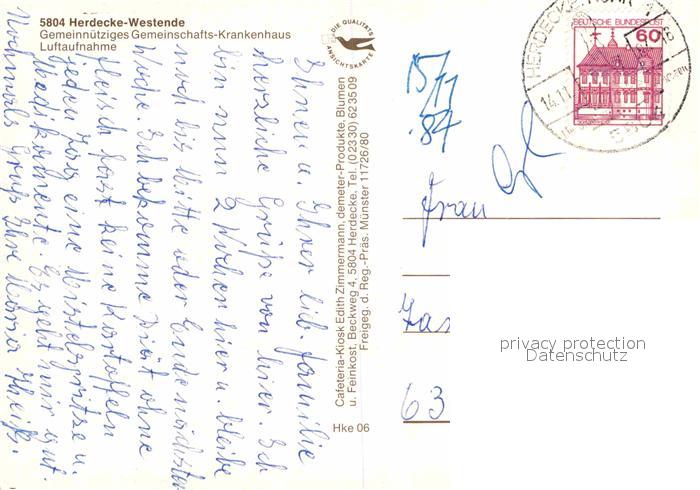 5804 Herdecke-Westende
Gemeinnütziges Gemeinschafts-Krankenhaus
Luftaufnahme
DIE QUALITÄTS
ANSICHTSKARTE
Ihnen u. Ihrer lieb. Familie
herzliche Grüße von hier. Ich
bin nun 2 Wochen hier u. bleibe
noch bis Mitte oder Ende nächster
Woche. Ich bekomme Diät ohne
Fleisch fast keine Kartoffeln
jeden Tag eine Mistelspritze u.
Medikamente. Es geht mir gut.
Nochmals Gruß Ihre Maria
Cafeteria-Kiosk Edith Zimmermann, demeter-Produkte, Blumen
u. Feinkost, Beckweg 4, 5804 Herdecke, Tel. (02330) 623509
Freigeg. d. Reg.-Präs. Münster 11726/80
Hke 06
15/11
84
HERDECKE, RUHR 1
14.11
DEUTSCHE BUNDESPOST
60
Frau
63
privacy protection
Datenschutz